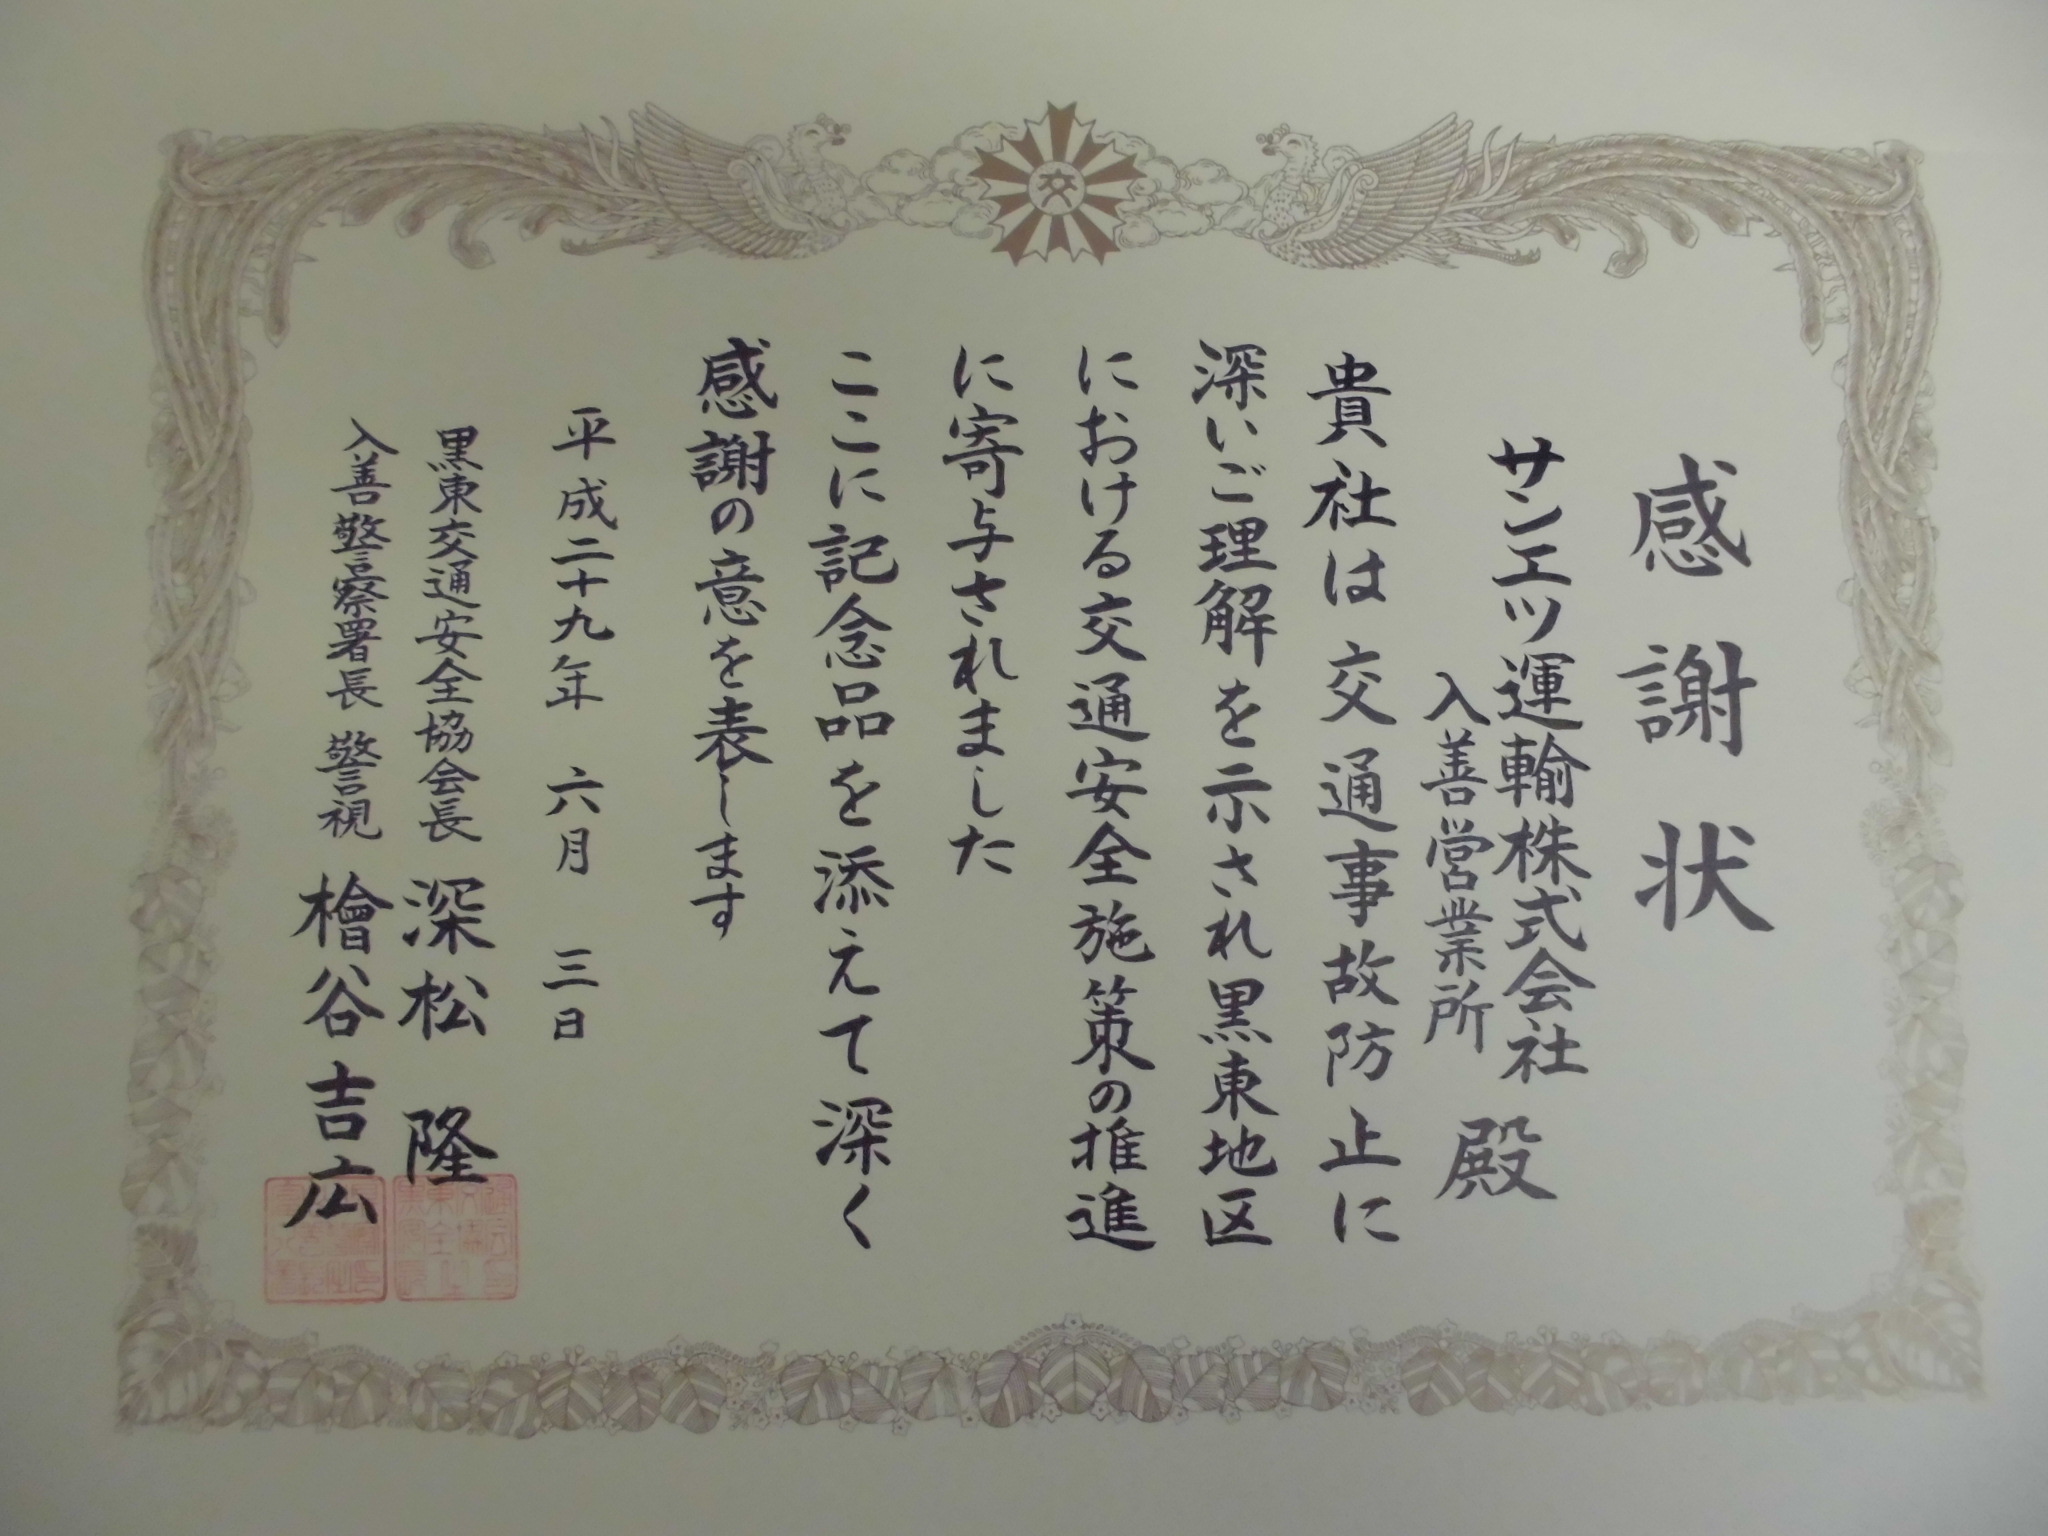 感謝状
サンエツ運輸株式会社
入善営業所 殿
貴社は交通事故防止に
深いご理解を示され黒東地区
における交通安全施策の推進
に寄与されました
ここに記念品を添えて深く
感謝の意を表します
平成二十九年 六月 三日
黒東交通安全協会長 深松 隆
入善警察署長 警視 檜谷吉広
交